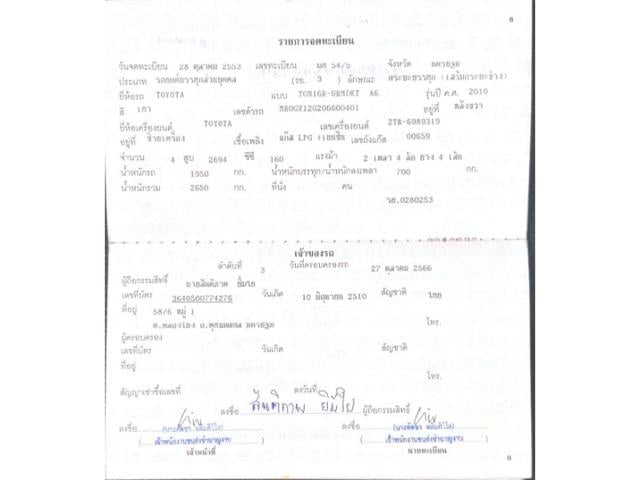 8
รายการจดทะเบียน
วันจดทะเบียน 28 ตุลาคม 2553 เลขทะเบียน 54/5 จังหวัด นครปฐม
ประเภท รถยนต์บรรทุกส่วนบุคคล (รย. 3 ) ลักษณะ กระบะบรรทุก (เสริมกระบะข้าง)
ยี่ห้อรถ TOYOTA แบบ TGN16R-URMDKT A6 รุ่นปี ค.ศ. 2010
สี เทา เลขตัวรถ MR0GX12G206600401 อยู่ที่ หลังขวา
ยี่ห้อเครื่องยนต์ TOYOTA เลขเครื่องยนต์ 2TR-6989319
อยู่ที่ ซ้ายเครื่อง เชื้อเพลิง แก๊ส LPG +เบนซิน เลขถังแก๊ส 00659
จำนวน 4 สูบ 2694 ซีซี 160 แรงม้า 2 เพลา 4 ล้อ ยาง 4 เส้น
น้ำหนักรถ 1950 กก. น้ำหนักบรรทุก/น้ำหนักลงเพลา 700 กก.
น้ำหนักรวม 2650 กก. ที่นั่ง คน
วย.0280253
เจ้าของรถ
ลำดับที่ 3 วันที่ครอบครองรถ 27 ตุลาคม 2566
ผู้ถือกรรมสิทธิ์ นายสันติภาพ ยิ้มใย
เลขที่บัตร 3640500774276 วันเกิด 10 มิถุนายน 2510 สัญชาติ ไทย
ที่อยู่ 58/6 หมู่ 1
ต.คลองโยง อ.พุทธมณฑล นครปฐม โทร.
ผู้ครอบครอง
เลขที่บัตร วันเกิด สัญชาติ
ที่อยู่
โทร.
สัญญาเช่าซื้อเลขที่ ลงวันที่
ลงชื่อ สันติภาพ ยิ้มใย ผู้ถือกรรมสิทธิ์
ลงชื่อ ลงชื่อ
(เจ้าพนักงานขนส่งชำนาญงาน) (เจ้าพนักงานขนส่งชำนาญงาน)
เจ้าหน้าที่ นายทะเบียน